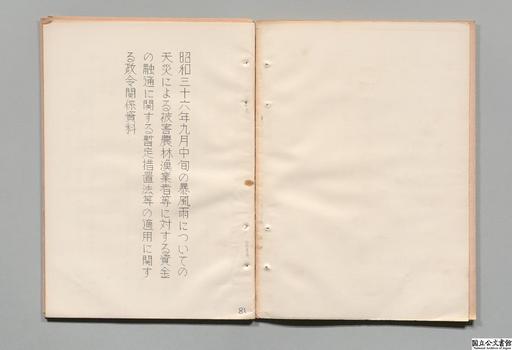 昭和三十六年九月中旬の暴風雨についての
天災による被害農林漁業者等に対する資金
の融通に関する暫定措置法等の適用に関す
る政令関係資料
81
国立公文書館
National Archives of Japan